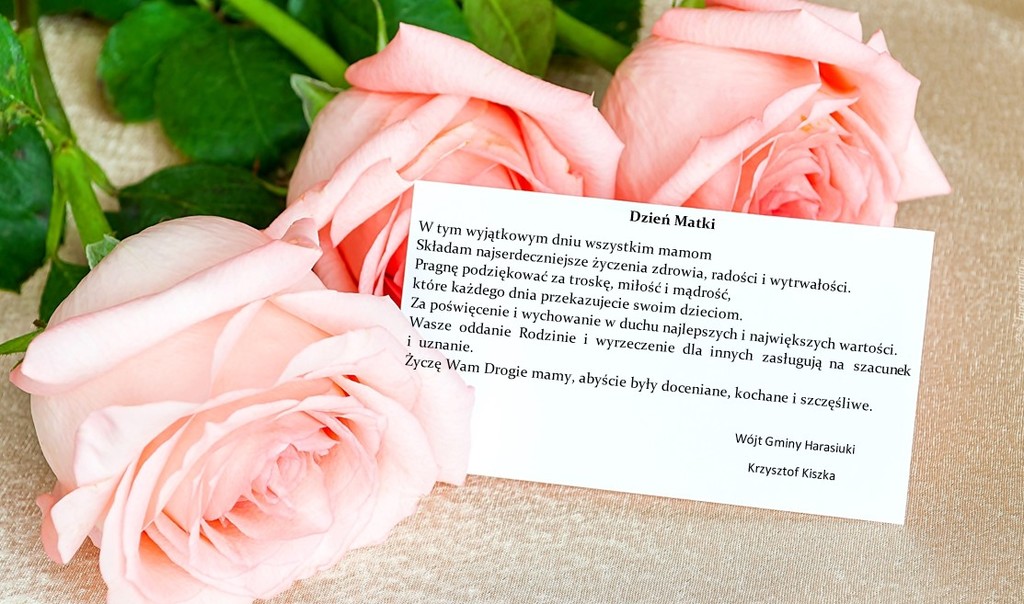 Dzień Matki
W tym wyjątkowym dniu wszystkim mamom
Składam najserdeczniejsze życzenia zdrowia, radości i wytrwałości.
Pragnę podziękować za troskę, miłość i mądrość,
które każdego dnia przekazujecie swoim dzieciom.
Za poświęcenie i wychowanie w duchu najlepszych i największych wartości.
Wasze oddanie Rodzinie i wyrzeczenie dla innych zasługują na szacunek
i uznanie.
Życzę Wam Drogie mamy, abyście były doceniane, kochane i szczęśliwe.
Wójt Gminy Harasiuki
Krzysztof Kiszka